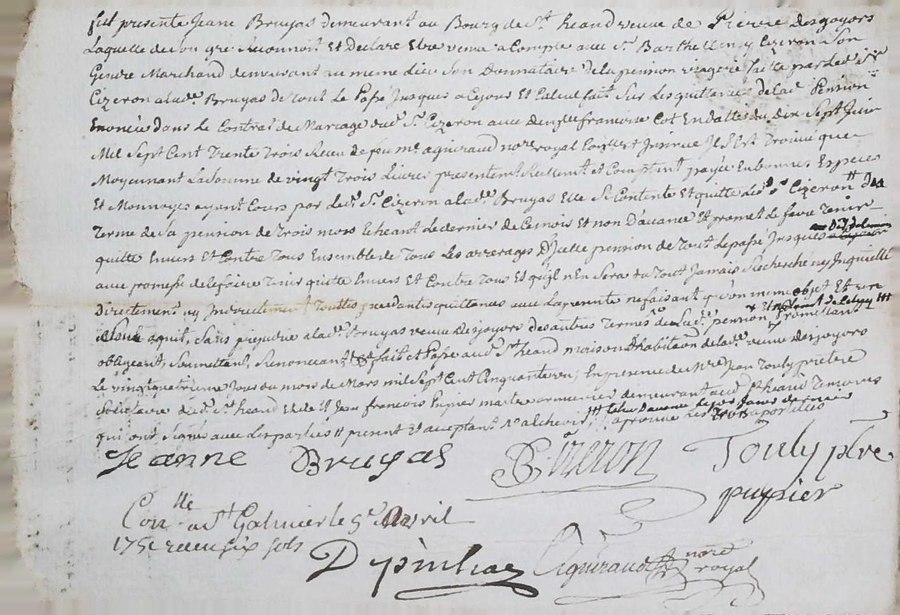 fut presente Jeane Bruyas demeurant au Bourg de St heand veuve de Pierre Desjoyors
Laquelle de son gre Reconnoit Et Declare Etre venue a Compte avec Sr Barthellemy Cizeron Son
Gendre Marchand demeurant au meme lieu Son Donnataire de la pension viagere faite par led. Sr
Cizeron a lad. Bruyas de tout Le Passé Jusques a Ce jour Et Calcul fait Sur Les quittances de lad. Pension
Enoncée dans Le Contrat de Mariage dud. Sr Cizeron avec françoise Cot En datte du Dix Sept Juin
Mil Sept Cent Trente Trois Recu de feu me aguiraud nore royal Il s'Est Trouvé que
Moyennant La Somme de vingt Trois Livres presentement Reellement et Comptant payée En bonnes Especes
Et Monnoyes ayant Cours par led. Sr Cizeron a lad. Bruyas Elle Se Contente Et quitte led. Sr Cizeron
Terme de Sa pension de Trois mois Echeant Le dernier de Ce mois Et non D'avance Et promet Le faire Tenir
quitte Envers Et Contre Tous Ensemble de Tous Les arrerages D'jcelle pension de Tout Le passé Jusques
avec promesse de le faire Tenir quitte Envers Et Contre Tous Et qu'jl n'En Sera du Tout Jamais Recherché ny Jnquietté
Directement ny Jndirectement Touttes precedentes quittances avec La presente ne faisant qu'un meme objet Et un
acquit, Sans prejudice a lad. Bruyas veuve Desjoyors des autres Termes de Lad. pension promettant
obligeant, Soumettant, Renonceant fait et Passé aud. St heand maison d'habitation de lad. veuve desjoyors
Le vingt quatrieme Jour du mois de Mars mil Sept Cent Cinquante un En presence de Mre Jean Touly pretre
Societaire dud. St heand Et de Sr Jean francois pupier maitre armurier demeurant aud. St heand Temoins
qui ont Signés avec Les parties
Jeanne Bruyas B. Cizeron Touly ptre
pupier
Con.lle a St Galmier le 5e Avril
1751 recu six sols
Depinhac Aguiraud nore
royal